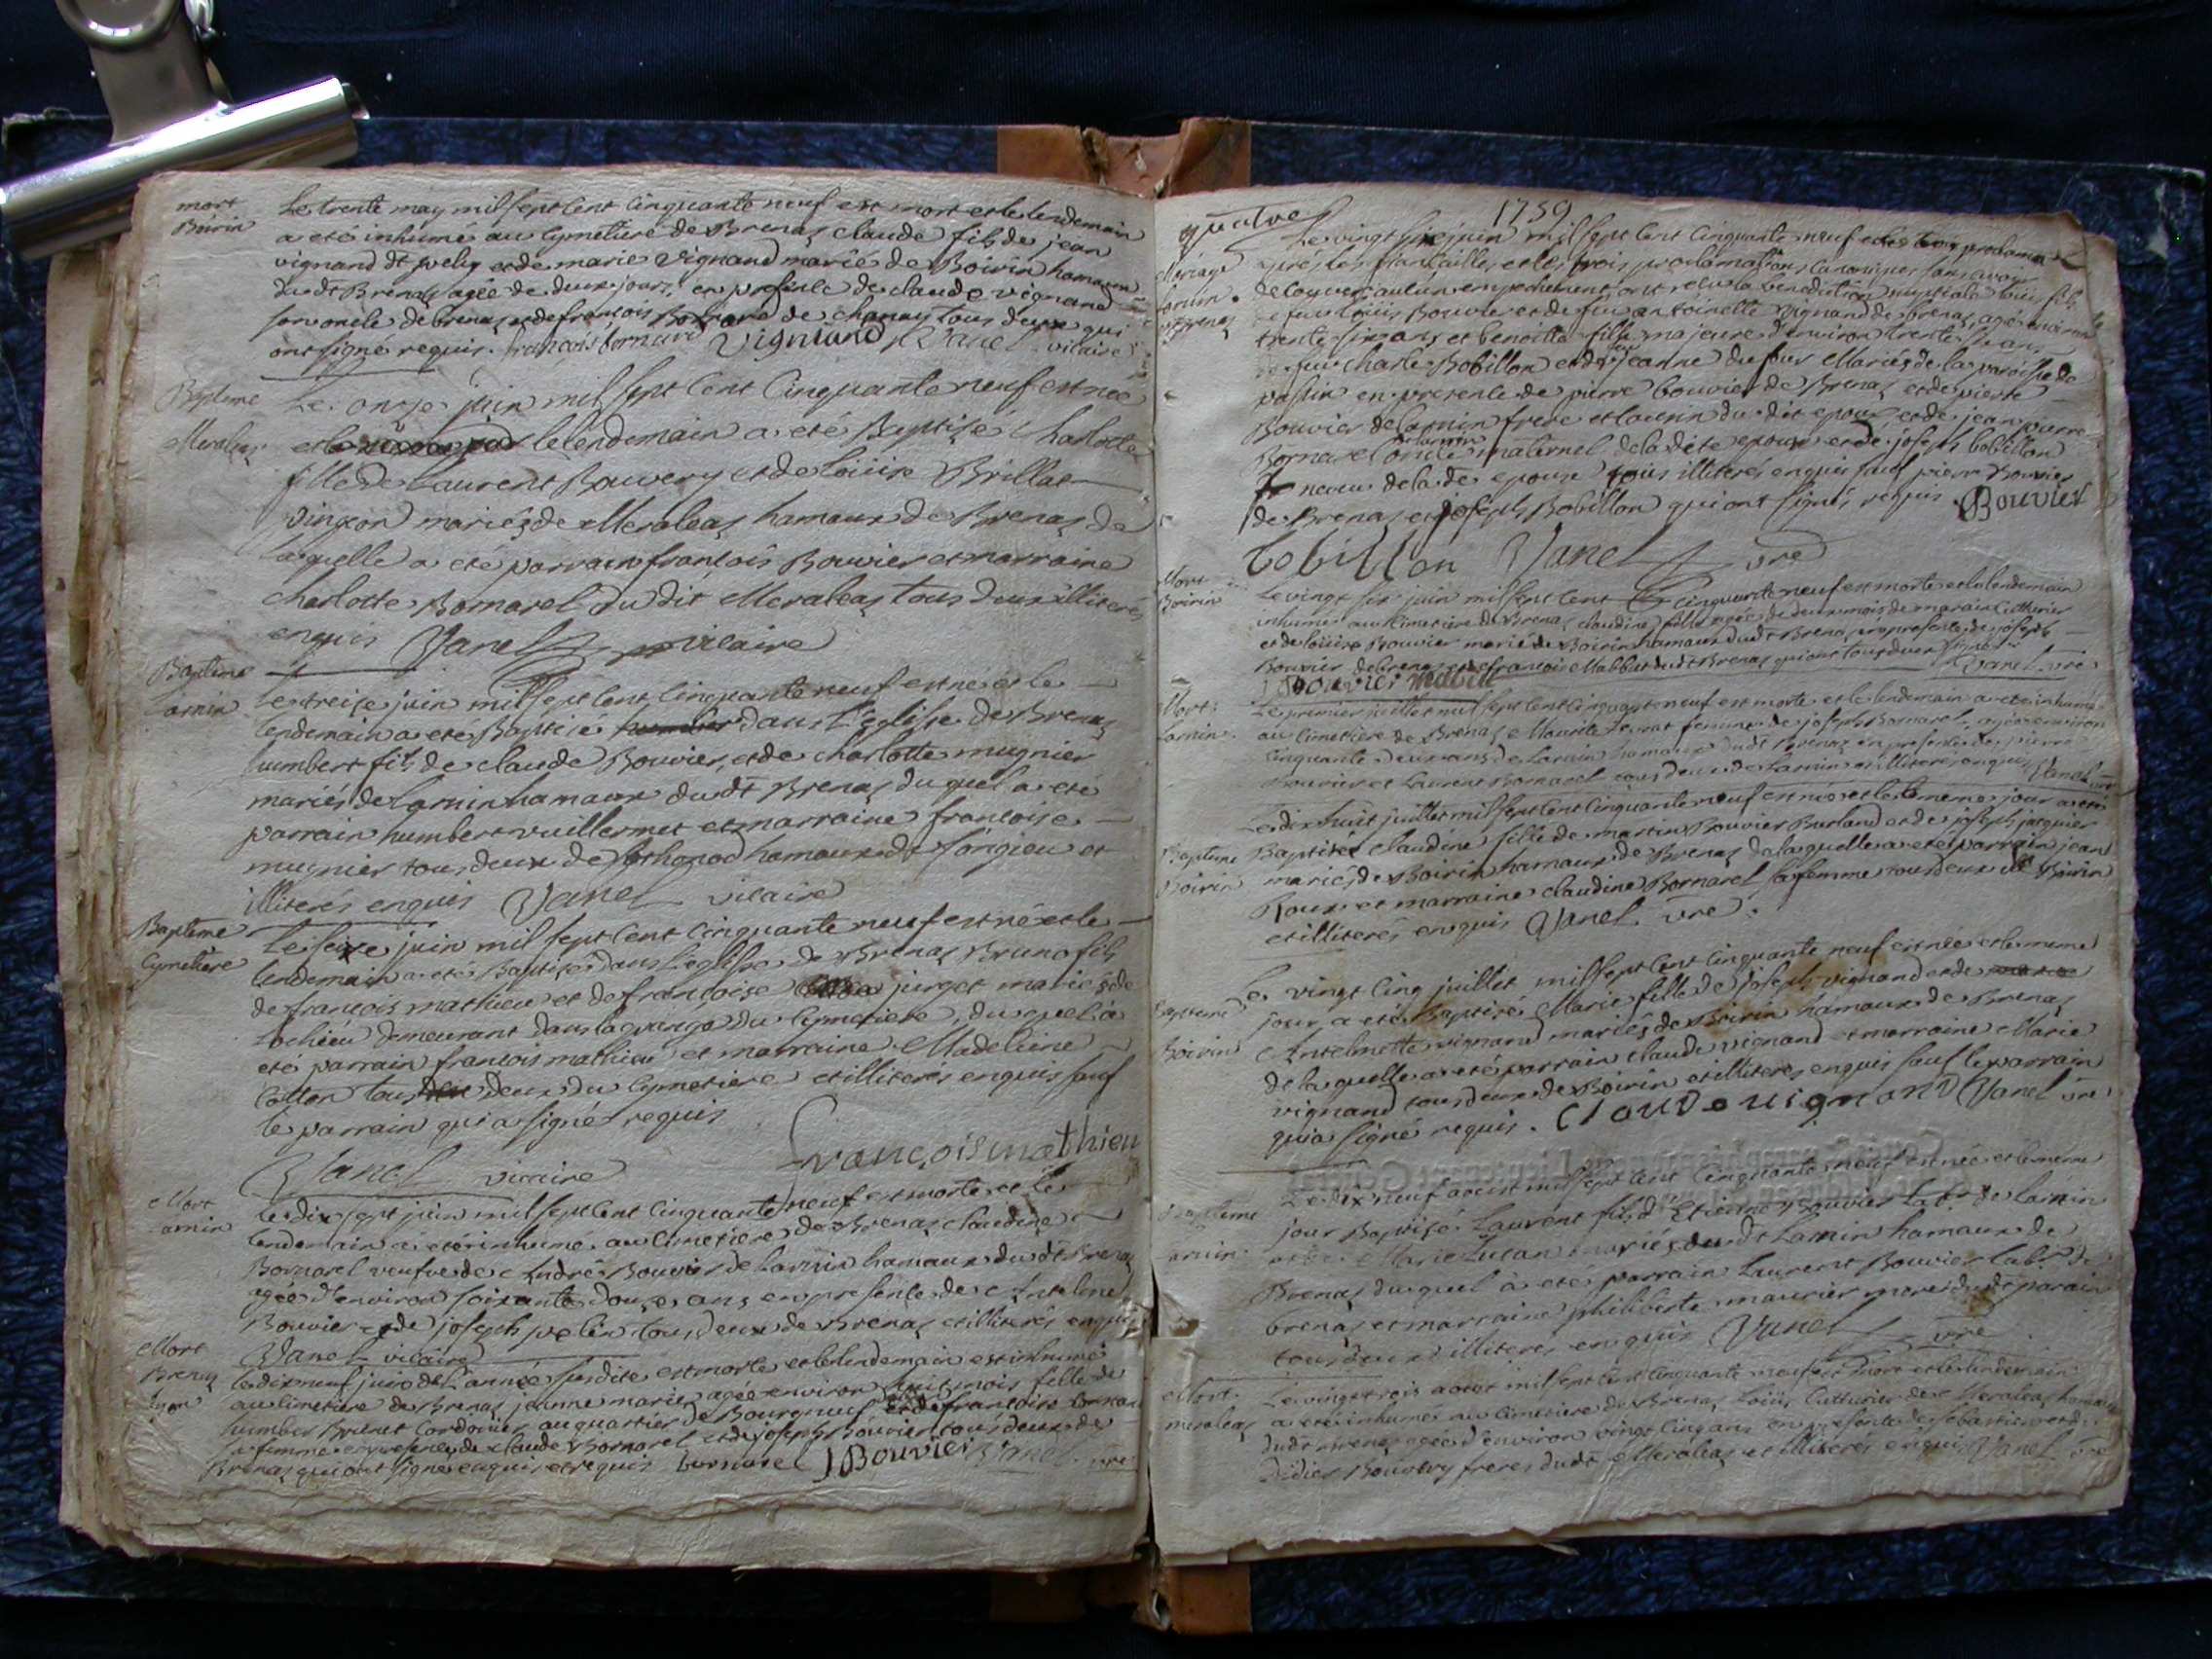 mort
Boirin
Le trente may mil sept cent cinquante neuf est mort et le lendemain
a eté inhumé au cymetiere de Brenaz claude fils de jean
vignand dt pelin et de marie vignand marié de Boirin hamaux
dudt Brenaz agée de deux jours, en presence de claude vignand
son oncle de brenaz et de francois Bornard de chanay tous deux qui
ont signé requis. francois bornard Vignand Vanel vicaire
Bapteme
Meraleaz
Le onze juin mil sept cent cinquante neuf est née
et le lendemain a eté Baptisé charlotte
fille de Laurent Bouvery et de Loüise Brillat
vingxon mariés de Meraleaz hamaux de Brenaz de
laquelle a eté parrain francois Bouvier et marraine
charlotte Bornarel du dit Meraleaz tous deux illiterés
enquis Vanel vicaire
Bapteme
Larnin
Le treize juin mil sept cent cinquante neuf est né et le
lendemain a eté Baptisé humber dans l'Eglise de Brenaz
humbert fils de claude Bouvier, et de charlotte mugnier
mariés de Larnin hamaux dudt Brenaz du quel a eté
parrain humbert vuillermet et marraine francoise
mugnier tous deux de hamaux de Songieu et
illiterés enquis Vanel vicaire
Bapteme
Cymetiere
Le seize juin mil sept cent cinquante neuf est né et le
lendemain a eté Baptisé dans l'eglise de Brenaz Bruno fils
de francois mathieu et de francoise jurget mariés de
Lochieu demeurant dans la grange du Cymetiere, du quel a
eté parrain francois mathieu et marraine Madeleine
Cotton tous deux du Cymetiere et illiterés enquis sauf
le parrain qui a signé requis
francois mathieu
Vanel vicaire
Mort
Larnin
Le dix sept juin mil sept cent cinquante neuf est morte et le
lendemain a eté inhumé au cimetiere de Brenaz claudine
Bornarel veufve de André Bouvier de Larnin hamaux dudt Brenaz
agée d'environ soixante douze ans en presence de Antelme
Bouvier et de joseph pelin tous deux de Brenaz et illiterés enquis
Vanel vicaire
Mort
Brenaz
Le dix neuf juin de l'année susdite est morte et le lendemain est inhumé
au cimetiere de Brenaz jeanne marie agée environ huit mois fille de
humber Brunet Cordonier au quartier de Bourgneuf et de francoise bornarel
sa femme en presence de claude Bornarel et de joseph Bouvier tous deux de
Brenaz qui ont signé enquis et requis bornarel J Bouvier Vanel vre
quatre
1759
Mariage
Larnin
et Brenaz
Le vingt six juin mil sept cent cinquante neuf
après les fiancailles et les trois proclamations canoniques sans avoir
decouvert aucun empechement ont recu la benediction nuptiale Loüis fils
de feu Loüis Bouvier et de feu antoinette vignand de brenaz, agé environ
trente six ans et benoitte fille majeure d'environ trente ans
de feu charle Bobillon et de jeanne du four Mariés de la paroisse de
passin en presence de pierre bouvier de Brenaz et de pierre
Bouvier de Larnin frere et cousin du dit epoux, et de jean pierre
Bornarel oncle maternel de la dite epouse et de joseph bobillon
neveu de la de epouse tous illiterés enquis sauf pierre Bouvier
de Brenaz et joseph Bobillon qui ont signés requis. Bouvier
bobillon Vanel vre
Mort
Boirin
Le vingt six juin mil sept cent cinquante neuf est morte et le lendemain
inhumé au Cimetiere de Brenaz claudine fille agée de deux mois de marain Cutturier
et de loüise Bouvier marié de Boirin hamaux dudt Brenaz, en presence de joseph
Bouvier de brenaz et de francois Mabbut dudt Brenaz qui ont tous deux signé
J Bouvier Mabut Vanel vre
Mort
Larnin
Le premier juillet mil sept cent cinquante neuf est morte et le lendemain a eté inhumé
au cimetiere de Brenaz femme de joseph Bornarel agée environ
cinquante deux ans de Larnin hamaux dudt Brenaz en presence de pierre
Bouvier et Laurent Bornarel tous deux de Larnin et illiterés enquis Vanel vre
Bapteme
Boirin
Le dix huit juillet mil sept cent cinquante neuf est née et le meme jour a eté
Baptisée claudine fille de martin Bouvier Burland et de joseph jarquier
mariés de Boirin hamaux de Brenaz de laquelle a eté parrain jean
Roux et marraine claudine Bornarel sa femme tous deux de Boirin
et illiterés enquis Vanel vre
Bapteme
Boirin
Le vingt cinq juillet mil sept cent cinquante neuf est née et le meme
jour a eté Baptisé Marie fille de joseph vignand et de
Antelmette vignand mariés de Boirin hamaux de Brenaz
de laquelle a eté parrain claude vignand et marraine Marie
vignand tous deux de Boirin et illiterés enquis sauf le parrain
qui a signé requis. Claude vignand Vanel vre
Bapteme
Larnin
Le dix neuf aoust mil sept cent cinquante neuf est né et le meme
jour Baptisé Laurent fils d'Etienne Bouvier labr de larnin
et de Marie Lucan mariés dudt Larnin hamaux de
Brenaz duquel a eté parrain Laurent Bouvier labr de
brenaz et marraine philiberte maurier mere dudt parain
tous deux illiterés enquis Vanel vre
Mort
meraleaz
Le vingt trois aoust mil sept cent cinquante neuf est mort et le lendemain
a eté inhumé au cimetiere de Brenaz Loüis Cutturier de Meraleaz hamaux
dudt Brenaz agée d'environ vingt cinq ans en presence de sebastien et de
Didier Bouvery freres dudt Meraleaz et illiterés enquis Vanel vre